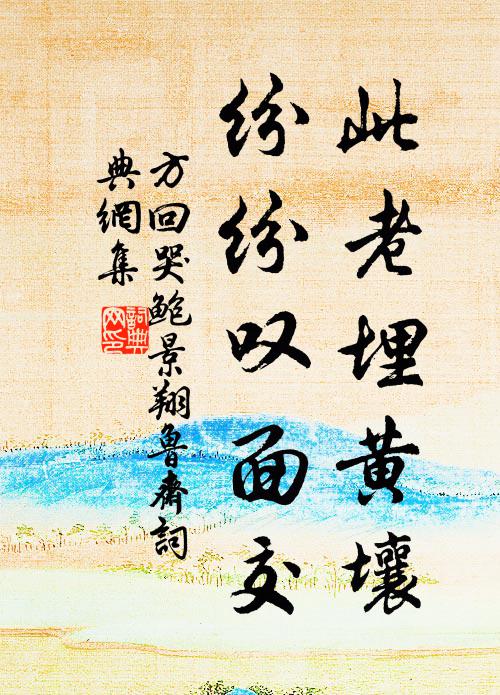 此老埋黄壤
纷纷叹面交
方回哭鲍景翔鲁斋词
典網集
詞典
网印